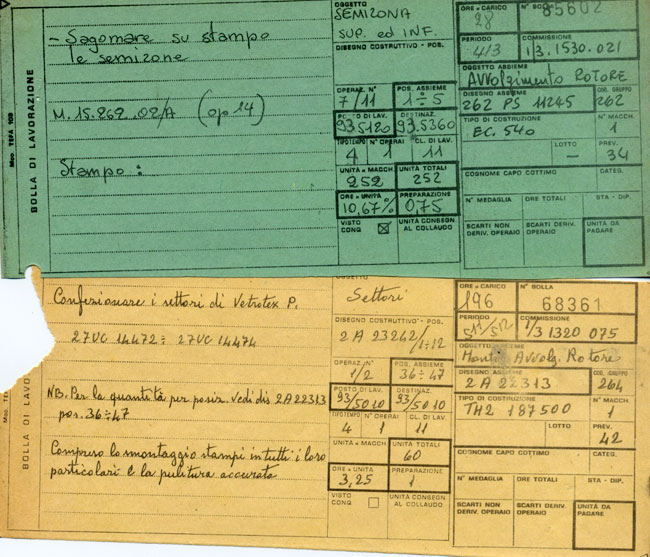 Mod. TEFA 103
BOLLA DI LAVORAZIONE
- Sagomare su stampo
le semizone
M. 15.262.02/A (op 14)
Stampo :
OGGETTO
SEMIZONA
SUP. ed INF.
DISEGNO COSTRUTTIVO - POS.
OPERAZ. N°
7/11
POS. ASSIEME
1÷5
POSTO DI LAV.
93 5120
DESTINAZ.
93.5360
TIPOTEMPO
4
N° OPERAI
1
CL. DI LAV.
11
UNITÀ x MACCH
252
UNITÀ TOTALI
252
ORE x UNITÀ
10,67%
PREPARAZIONE
0,75
VISTO
CONQ.
UNITÀ CONSEGN.
AL COLLAUDO
ORE x CARICO
28
N° BOLLA
85602
PERIODO
4/3
COMMISSIONE
1/3.1530.021
OGGETTO ASSIEME
AVVOLGIMENTO ROTORE
DISEGNO ASSIEME
262 PS 11245
COD. GRUPPO
262
TIPO DI COSTRUZIONE
EC. 540
N° MACCH.
1
LOTTO
—
PREV.
34
COGNOME CAPO COTTIMO
CATEG.
N° MEDAGLIA
ORE TOTALI
STA - DIP.
SCARTI NON
DERIV. OPERAIO
SCARTI DERIV.
OPERAIO
UNITÀ DA
PAGARE
BOLLA DI LAVO
Confezionare i settori di Vetrotex P.
27UC 14472 ÷ 27UC 14474
NB. Per la quantità per posiz. vedi dis 2A22313
pos. 36÷47
Compreso lo montaggio stampi in tutti i loro
particolari e la pulitura accurata
OGGETTO
Settori
DISEGNO COSTRUTTIVO - POS.
2A 23262/1÷12
OPERAZ. N°
1/2
POS. ASSIEME
36÷47
POSTO DI LAV.
93/5010
DESTINAZ.
93/5010
TIPOTEMPO
4
N° OPERAI
1
CL. DI LAV.
11
UNITÀ x MACCH
UNITÀ TOTALI
60
ORE x UNITÀ
3,25
PREPARAZIONE
1
VISTO
CONQ.
UNITÀ CONSEGN.
AL COLLAUDO
ORE x CARICO
196
N° BOLLA
68361
PERIODO
COMMISSIONE
1/3 1320 075
OGGETTO ASSIEME
Avvolg. Rotore
DISEGNO ASSIEME
2A 22313
COD. GRUPPO
264
TIPO DI COSTRUZIONE
TH2 187500
N° MACCH.
1
LOTTO
PREV.
42
COGNOME CAPO COTTIMO
CATEG.
N° MEDAGLIA
ORE TOTALI
STA - DIP.
SCARTI NON
DERIV. OPERAIO
SCARTI DERIV.
OPERAIO
UNITÀ DA
PAGARE